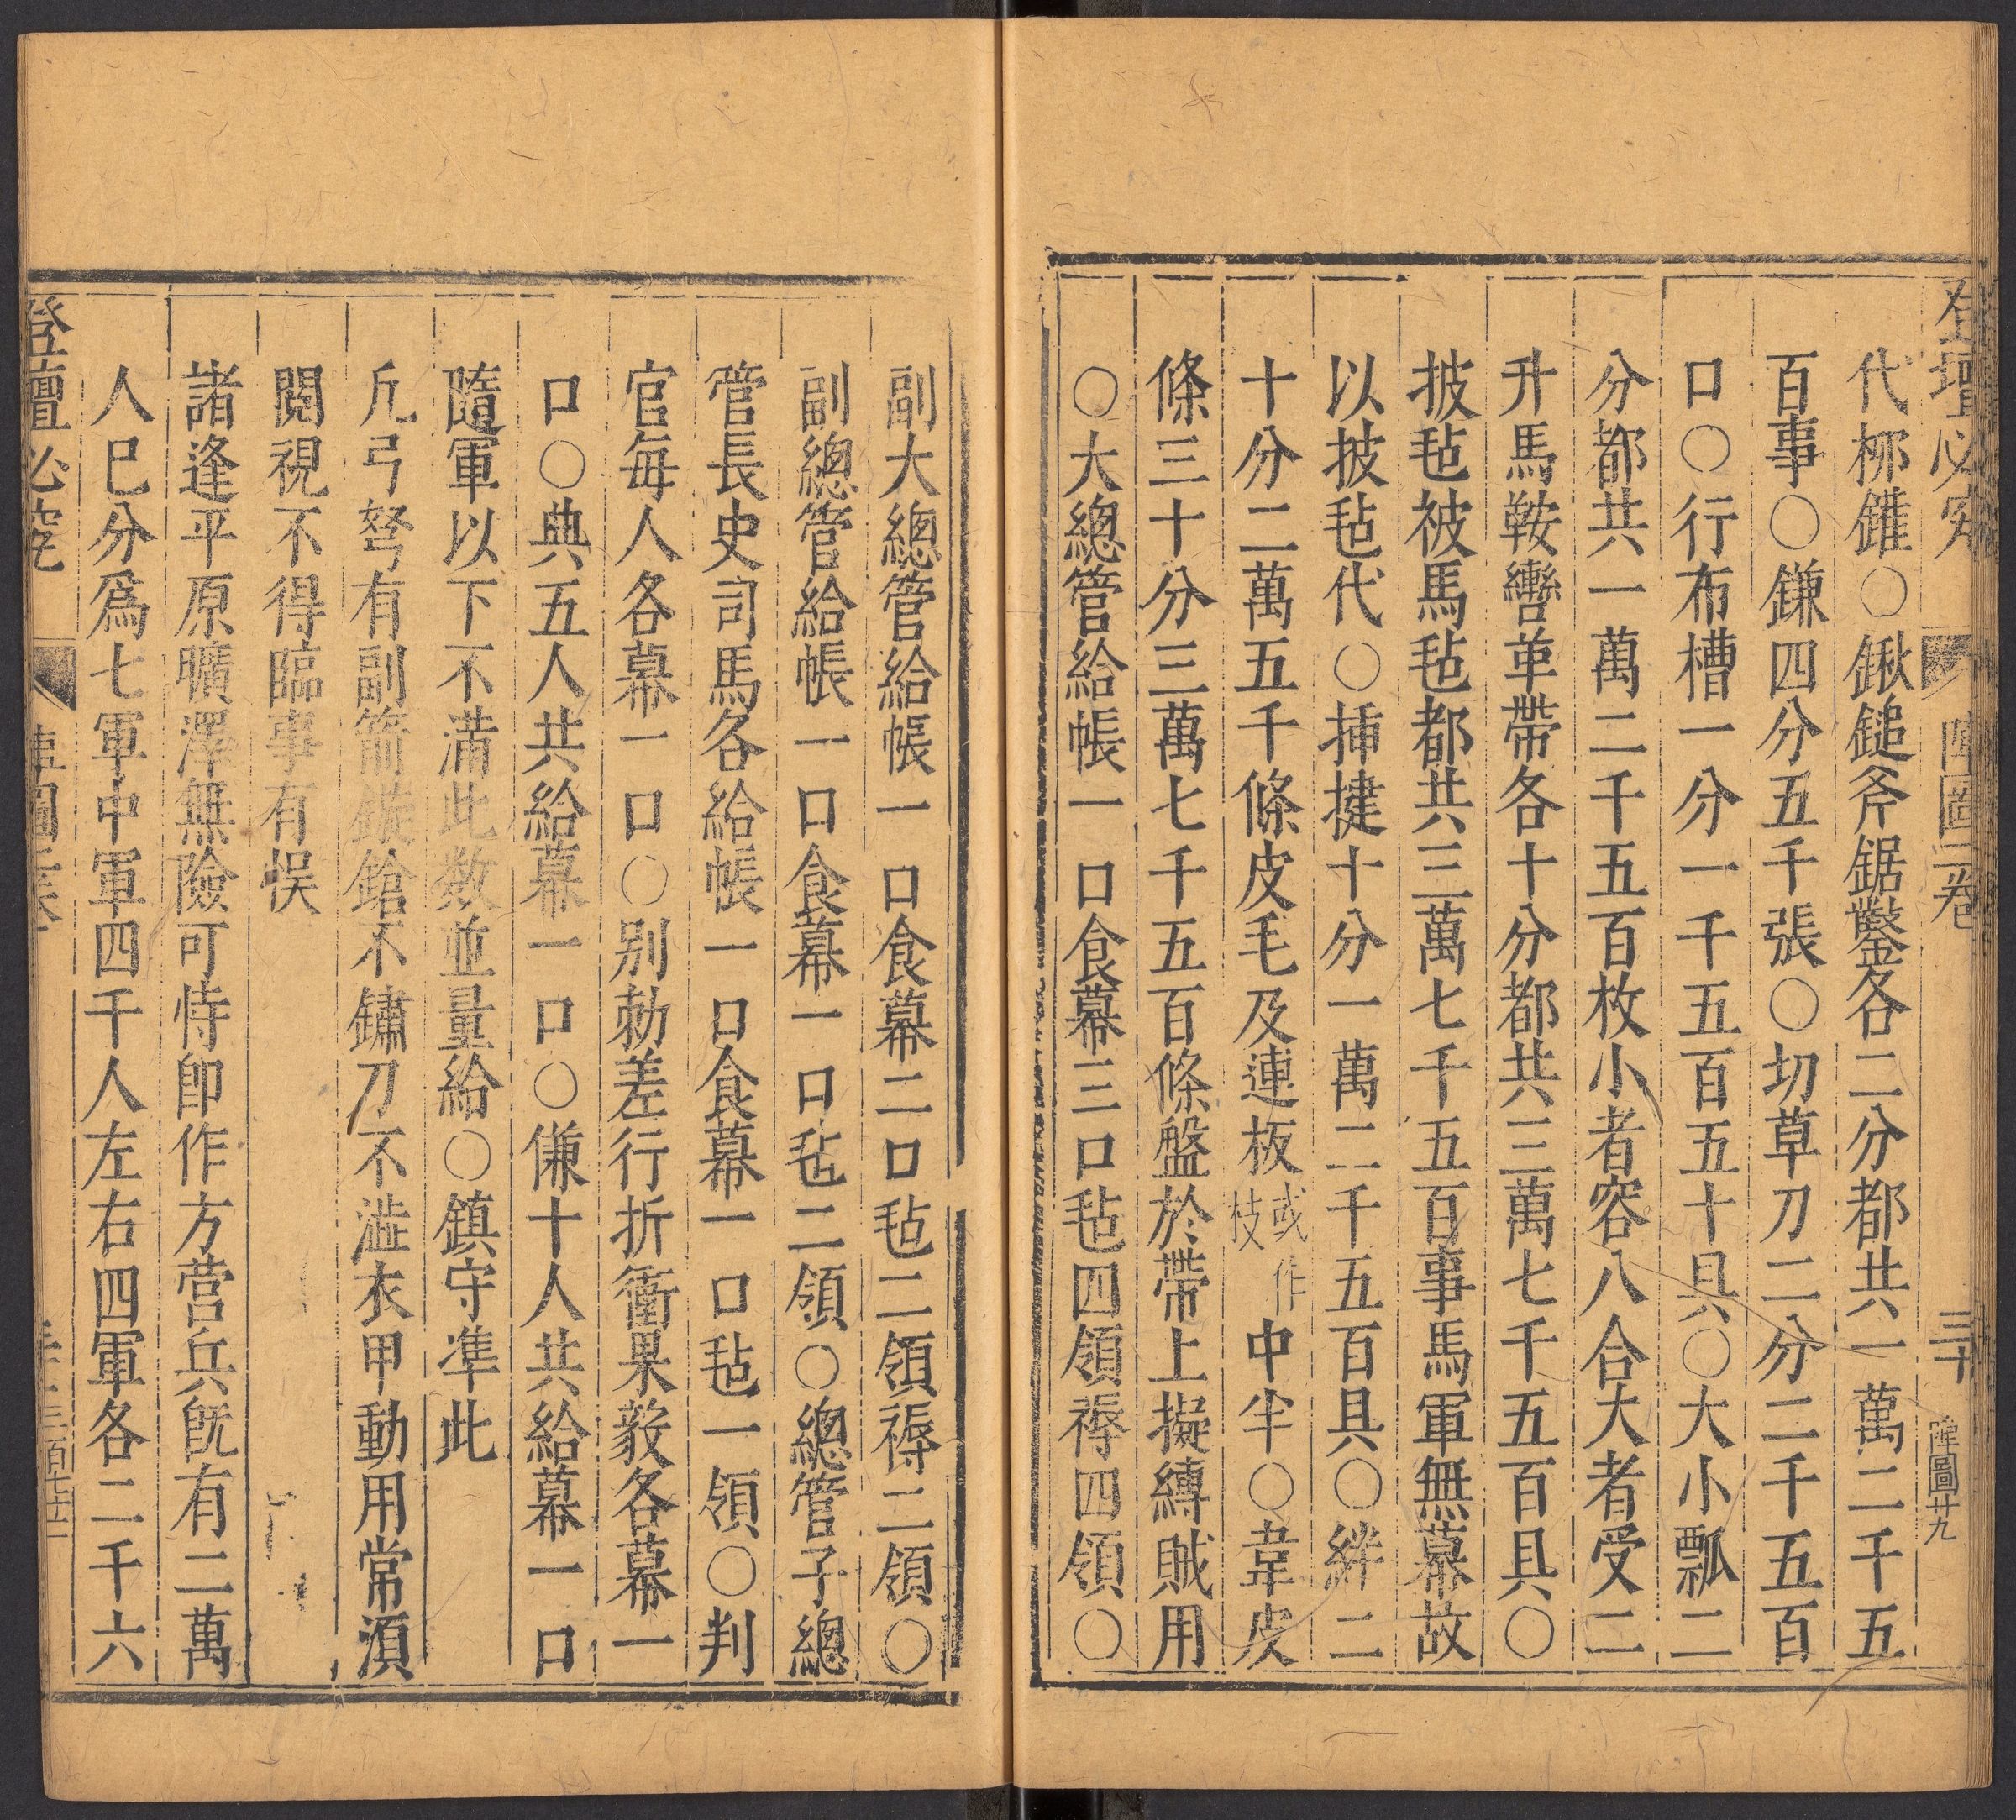 登壇必究 陣圖二卷 三十 陣圖廿九
代栁鑵○鍬鎚斧鋸鑿各二分都共一萬二千五
百事○鎌四分五千張○切草刀二分二千五百
口○行布槽一分一千五百五十具○大小瓢二
分都共一萬二千五百枚小者容八合大者受二
升馬鞍轡革帶各十分都共三萬七千五百具○
披毡被馬毡都共三萬七千五百事馬軍無幕故
以披毡代○揷揵十分一萬二千五百具○絆二
十分二萬五千條皮毛及連板或作枝中半○韋皮
條三十分三萬七千五百條盤於帶上擬縳賊用
○大總管給帳一口食幕三口毡四領褥四領○
副大總管給帳一口食幕二口毡二領褥二領○
副總管給帳一口食幕一口毡二領○總管子總
管長史司馬各給帳一口食幕一口毡一領○判
官每人各幕一口○别勅差行折衝果毅各幕一
口○典五人共給幕一口○傔十人共給幕一口
隨軍以下不滿此數並量給○鎮守凖此
凡弓弩有副箭鏇鎗不鏽刀不澁衣甲動用常湏
閱視不得臨事有悞
諸逢平原曠澤無險可恃卽作方营兵旣有二萬
人巳分爲七軍中軍四千人左右四軍各二千六
登壇必究